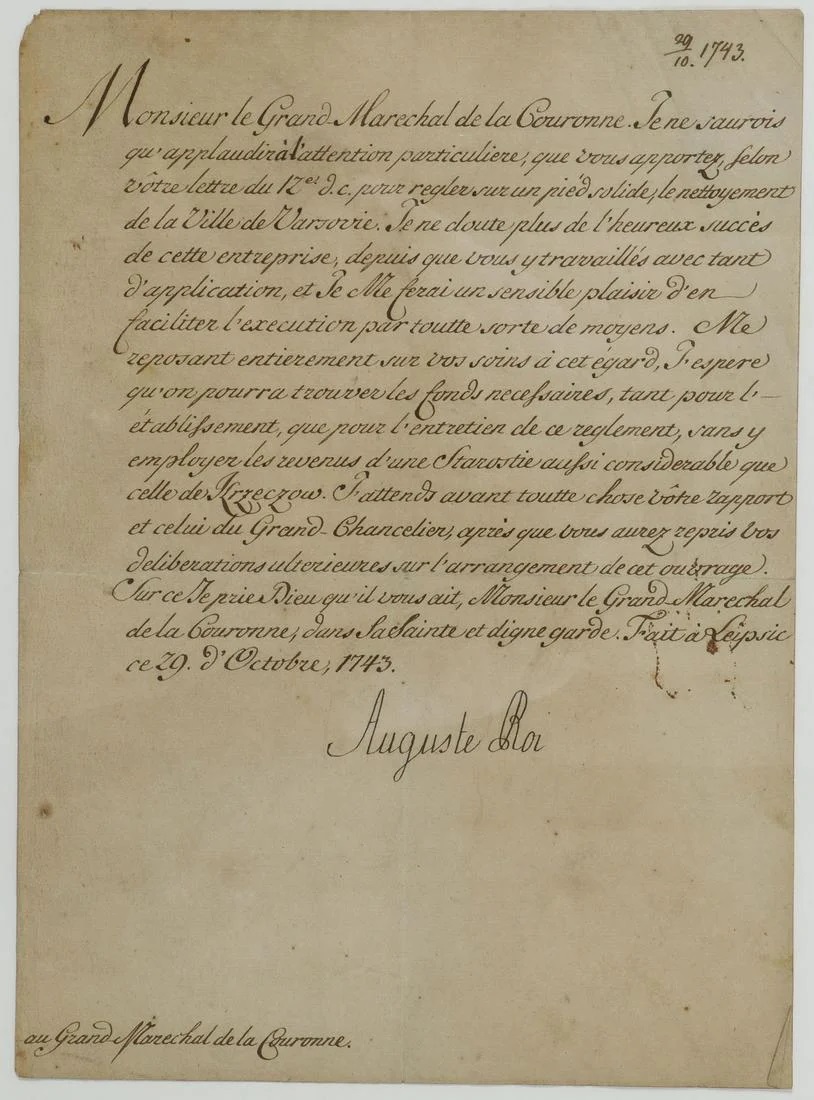 29/10. 1743.
Monsieur le Grand-Marechal de la Couronne. Je ne saurois
qu'applaudir à l'attention particuliere, que vous apportez, selon
vôtre lettre du 12es d. c. pour regler sur un pied solide, le nettoyement
de la Ville de Varsovie. Je ne doute plus de l'heureux succès
de cette entreprise, depuis que vous y travaillés avec tant
d'application, et Je Me ferai un sensible plaisir d'en
faciliter l'execution par toutte sorte de moyens. Me
reposant entierement sur vos soins à cet égard, J'espere
qu'on pourra trouver les fonds necessaires, tant pour l'-
établissement, que pour l'entretien de ce reglement, sans y
employer les revenus d'une Starostie aussi considerable que
celle de Krzeczow. J'attends avant toutte chose vôtre rapport
et celui du Grand-Chancelier, après que vous aurez repris vos
deliberations ulterieures sur l'arrangement de cet ouvrage.
Sur ce Je prie Dieu qu'il vous ait, Monsieur le Grand-Marechal
de la Couronne, dans Sa Sainte et digne garde. Fait à Leipsic
ce 29. d'Octobre, 1743.
Auguste Roi
au Grand-Marechal de la Couronne.